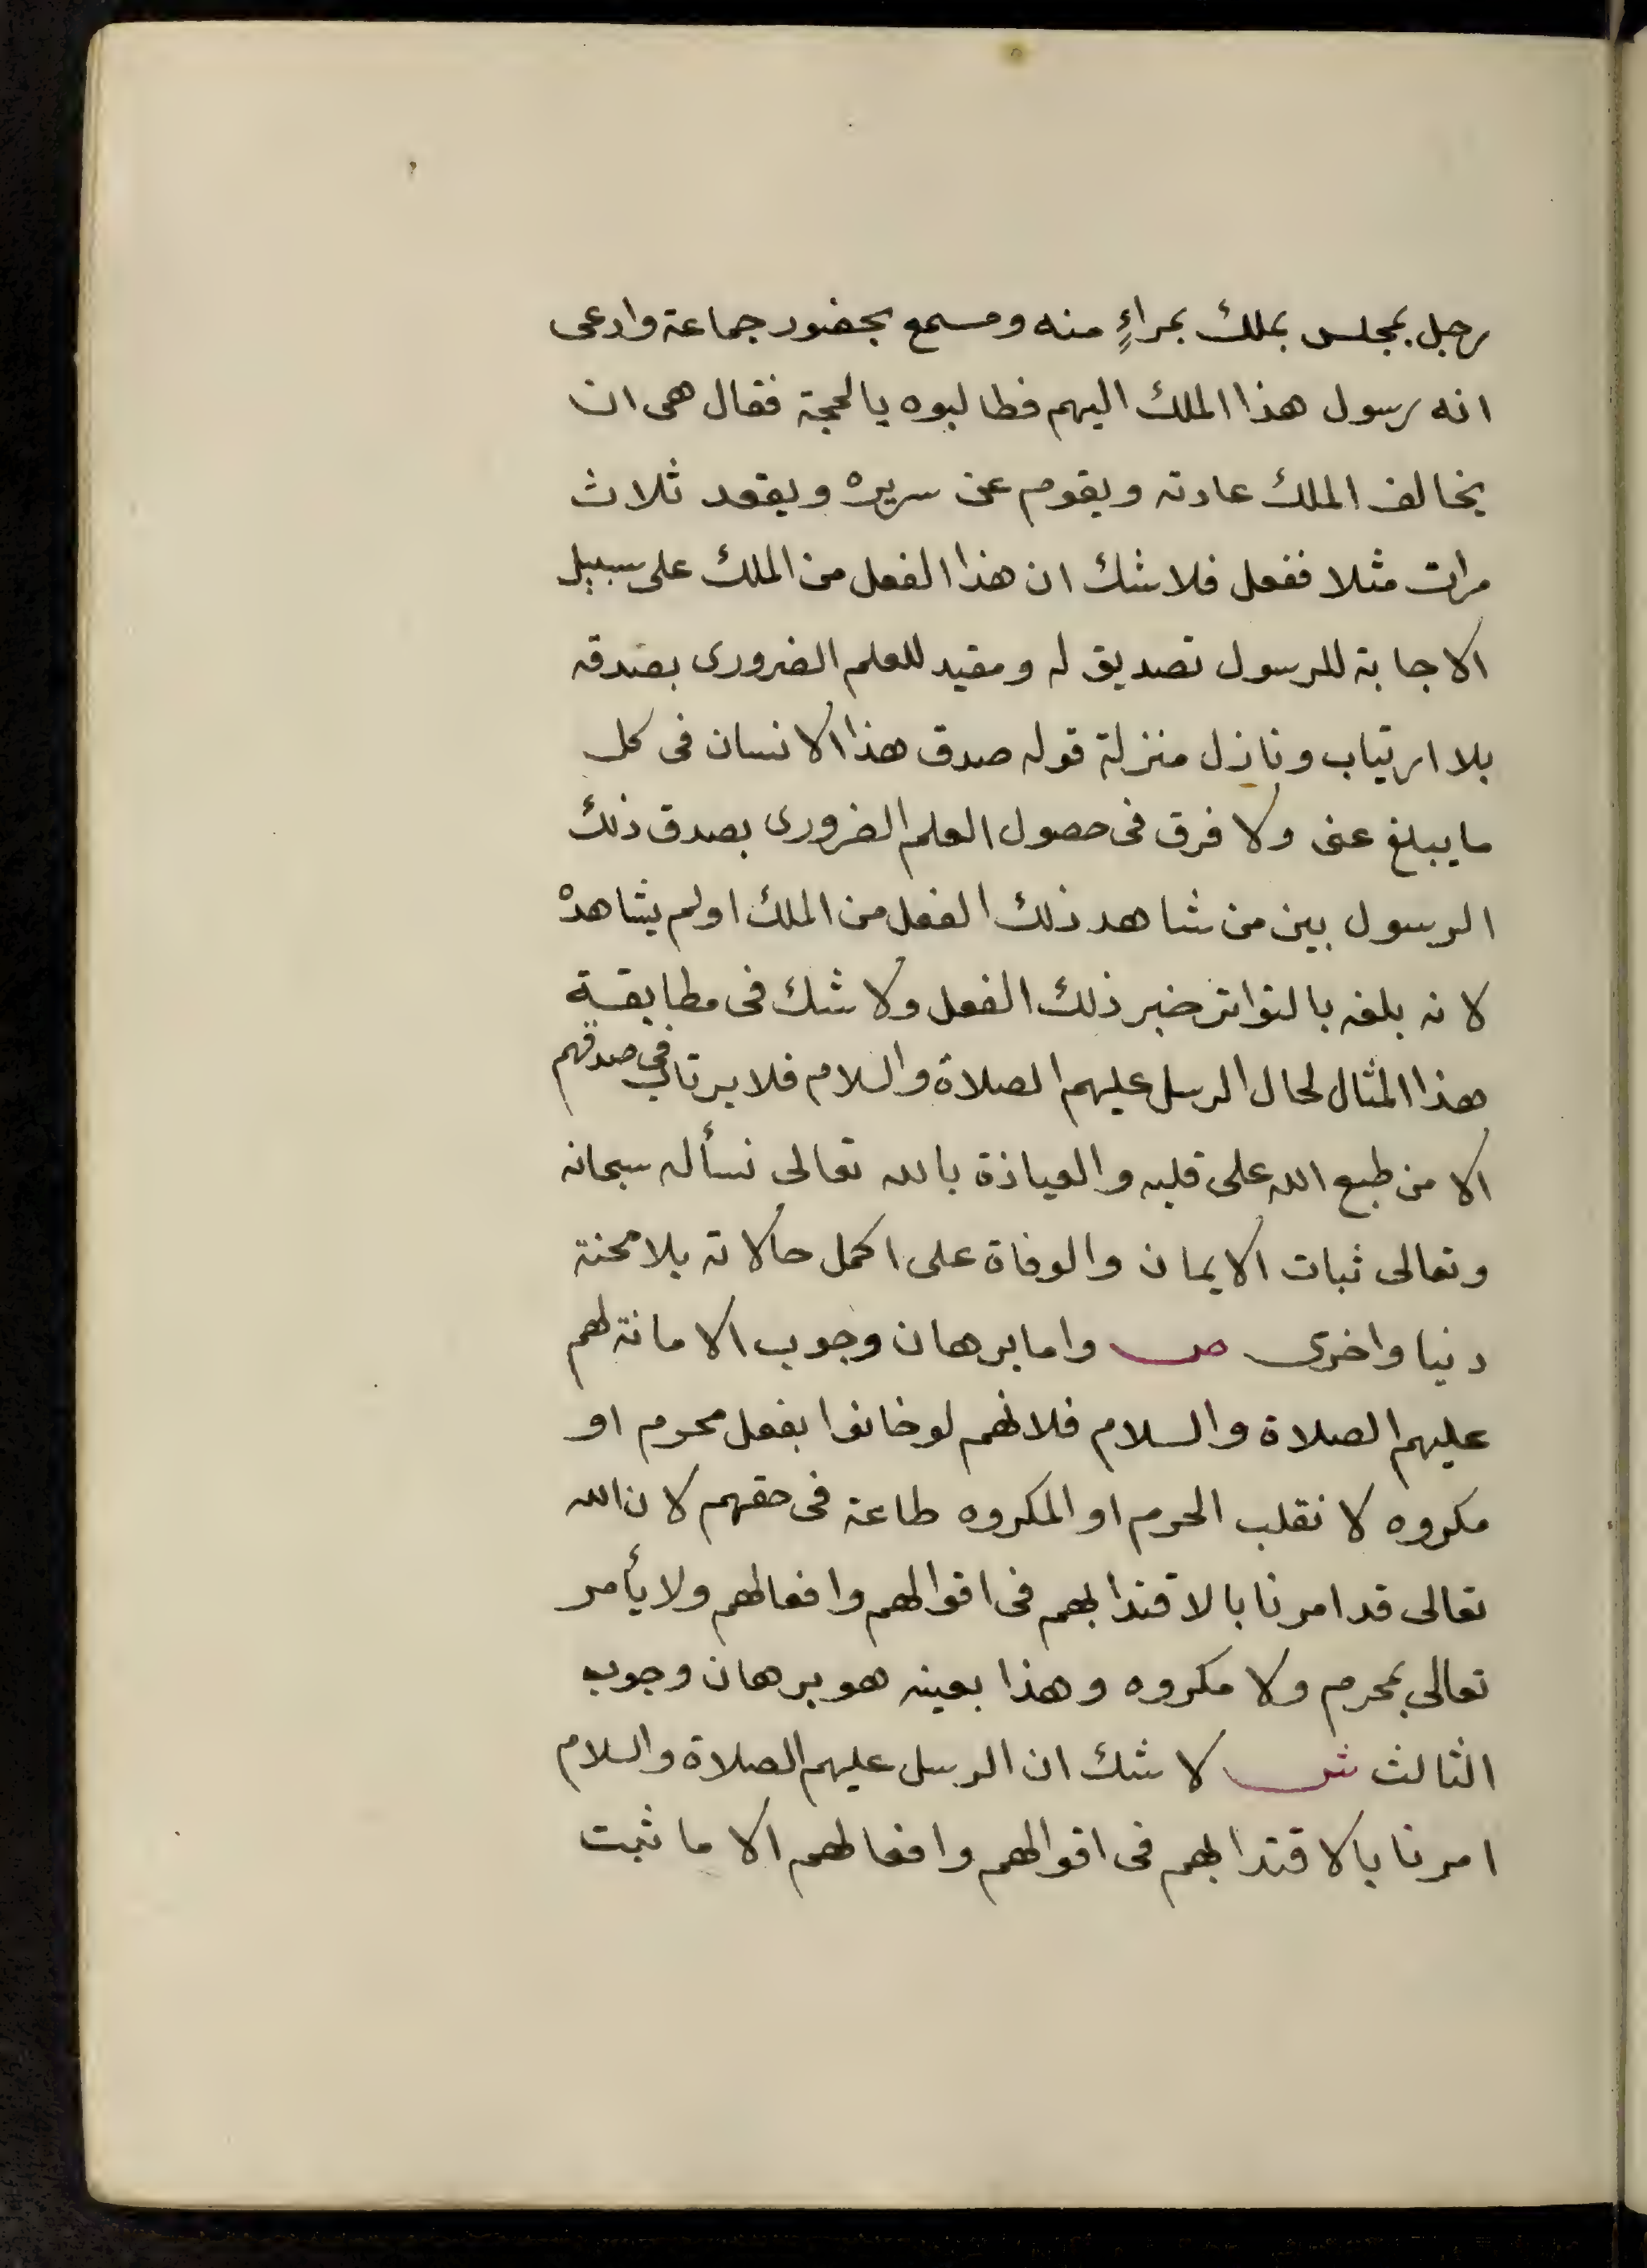 رجل بمجلس بملك بمراءٍ منه ومسمع بحضور جماعة وادعى
انه رسول هذا الملك اليهم فطالبوه بالحجة فقال هى ان
يخالف الملك عادته ويقوم عن سريره ويقعد ثلاث
مرات مثلا ففعل فلا شك ان هذا الفعل من الملك على سبيل
الاجابة للرسول تصديق له ومفيد للعلم الضرورى بصدقه
بلا ارتياب ونازل منزلة قوله صدق هذا الانسان فى كل
ما يبلغ عنى ولا فرق فى حصول العلم الضرورى بصدق ذلك
الرسول بين من شاهد ذلك الفعل من الملك او لم يشاهده
لانه بلغه بالتواتر خبر ذلك الفعل ولا شك فى مطابقة
هذا المثال لحال الرسل عليهم الصلاة والسلام فلا يرتاب فى صدقهم
الا من طبع الله على قلبه والعياذة بالله تعالى نسأله سبحانه
وتعالى ثبات الايمان والوفاة على اكمل حالاته بلا محنة
دنيا واخرى ص واما برهان وجوب الامانة لهم
عليهم الصلاة والسلام فلانهم لو خانوا بفعل محرم او
مكروه لانقلب المحرم او المكروه طاعة فى حقهم لان الله
تعالى قد امرنا بالاقتدا بهم فى اقوالهم وافعالهم ولا يأمر
تعالى بمحرم ولا مكروه وهذا بعينه هو برهان وجوب
الثالث ش لا شك ان الرسل عليهم الصلاة والسلام
امرنا بالاقتدا بهم فى اقوالهم وافعالهم الا ما ثبت